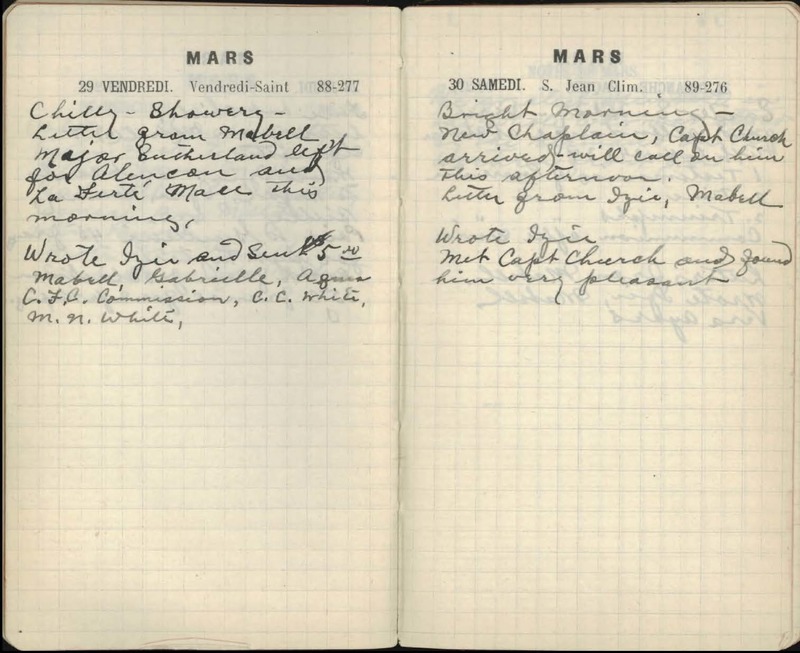 MARS
29 VENDREDI. Vendredi-Saint 88-277
Chilly - Showery -
Letter from Mabell
Major Sutherland left
for Alencon and
La Ferté Mace this
morning,
Wrote Izie and sent $5.00
Mabell, Gabrielle, Agnes
C.F.C. Commission, C.C. White,
M.N. White,
MARS
30 SAMEDI. S. Jean Clim. 89-276
Bright Morning -
New Chaplain, Capt Church
arrived - will call on him
this afternoon.
Letter from Izie, Mabell
Wrote Izie
Met Capt Church and found
him very pleasant